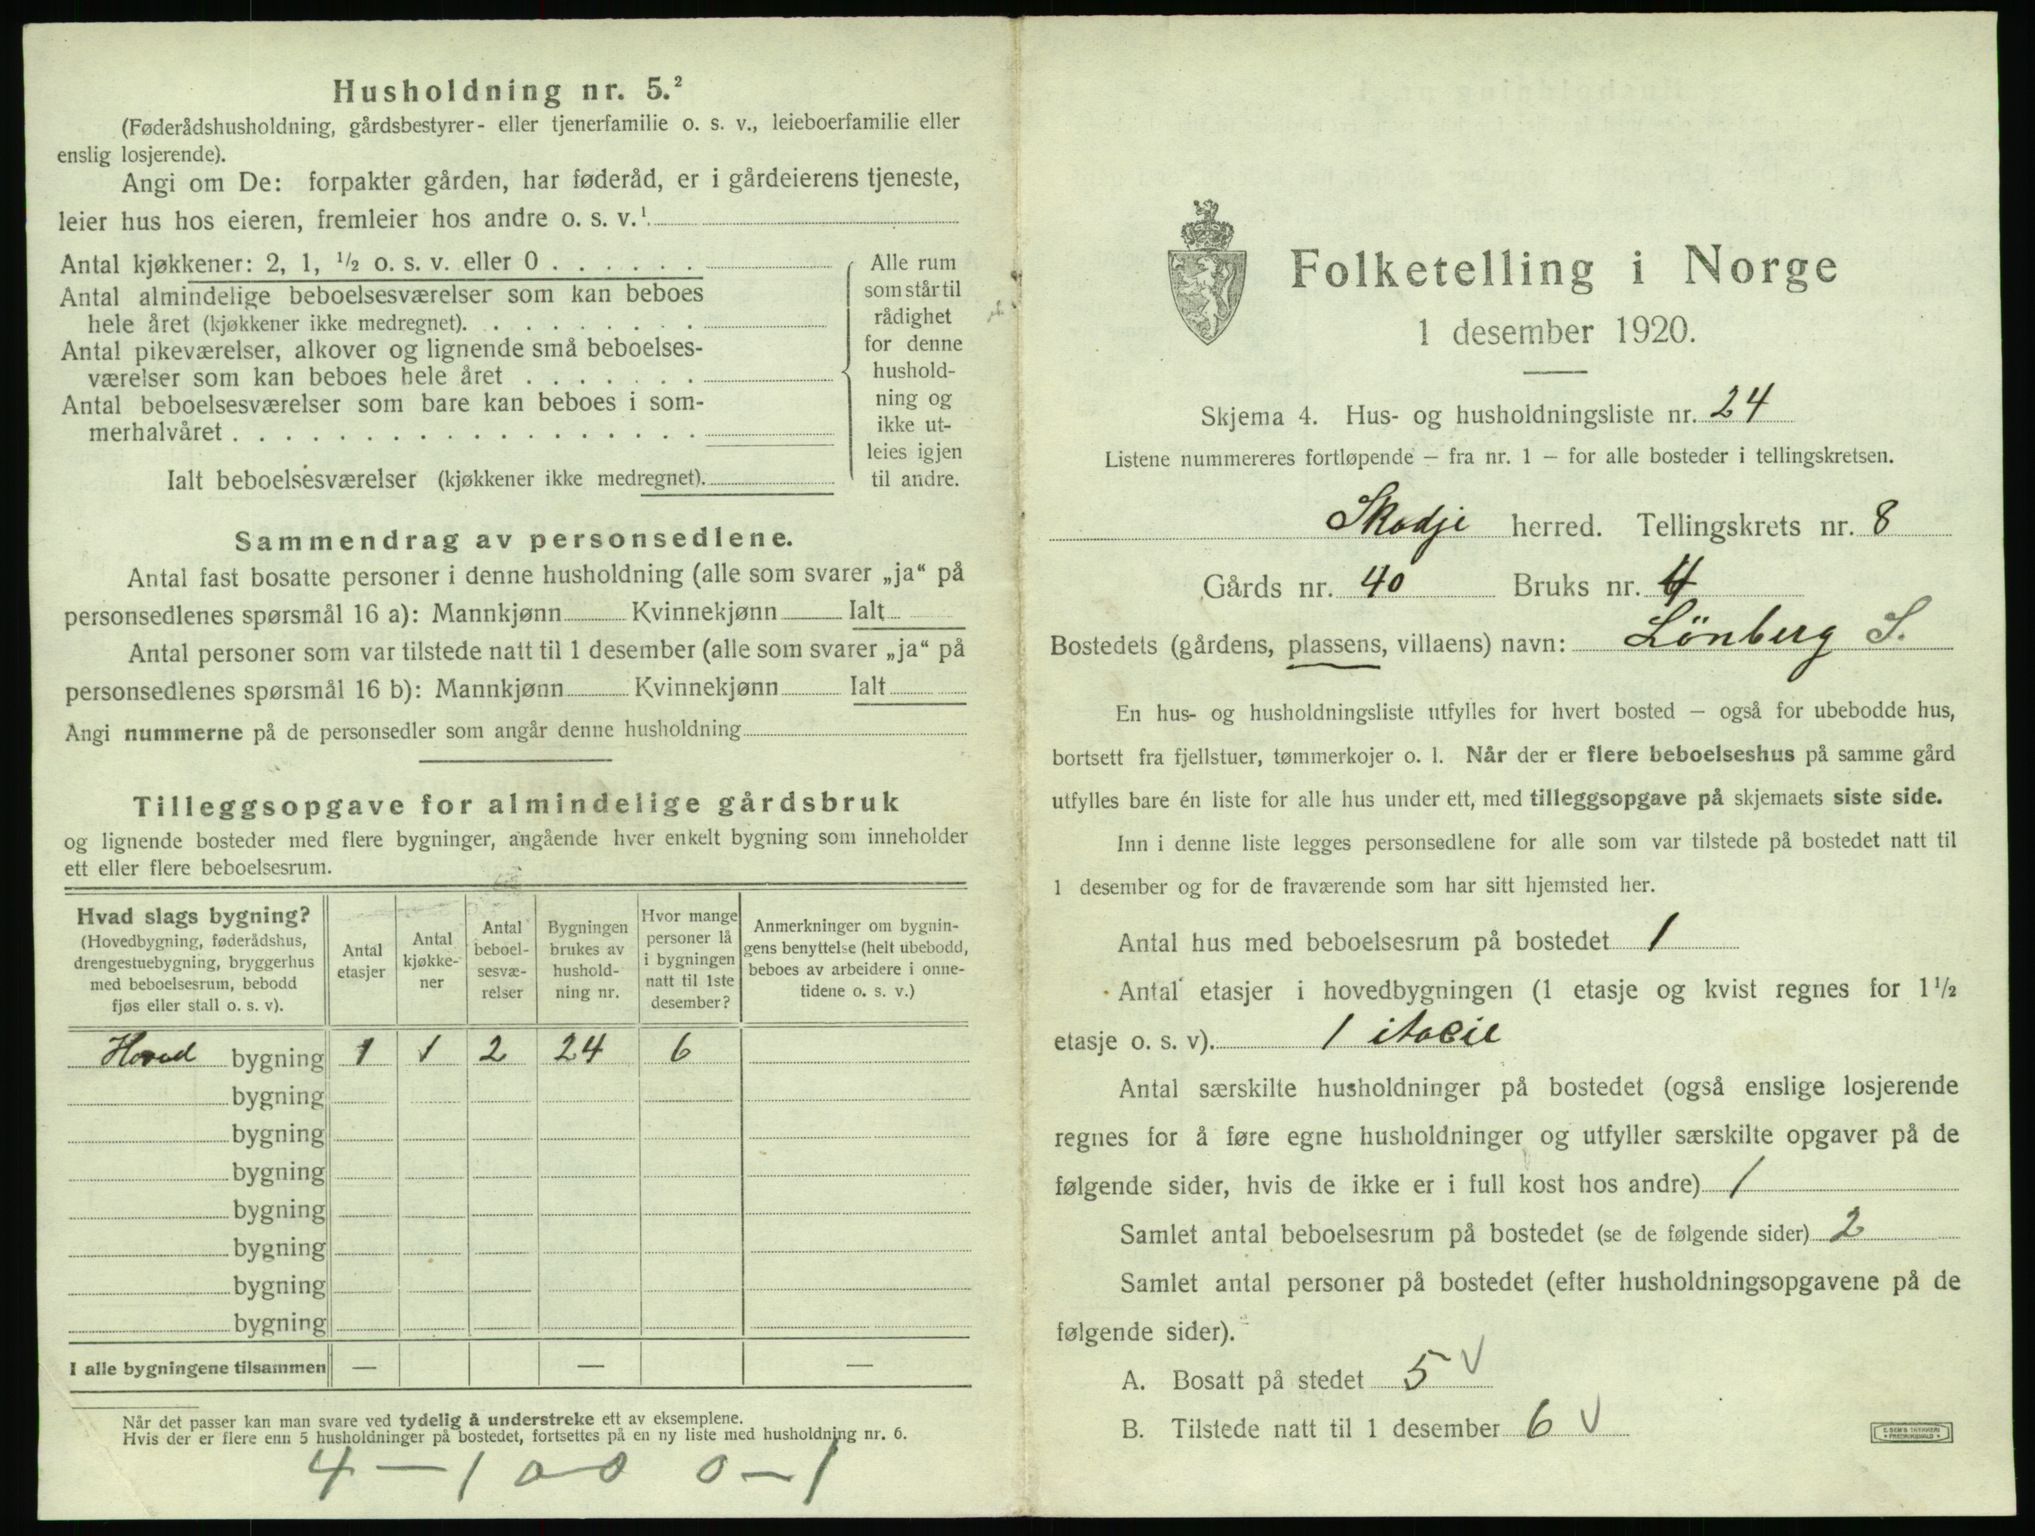 Husholdning nr. 5.²
(Føderådshusholdning, gårdsbestyrer- eller tjenerfamilie o. s. v., leieboerfamilie eller
enslig losjerende).
Angi om De: forpakter gården, har føderåd, er i gårdeierens tjeneste,
leier hus hos eieren, fremleier hos andre o. s. v.¹
Antal kjøkkener: 2, 1, ½ o. s. v. eller 0 . . . . . .
Antal almindelige beboelsesværelser som kan beboes
hele året (kjøkkener ikke medregnet). . . . . . . . .
Antal pikeværelser, alkover og lignende små beboelses-
værelser som kan beboes hele året . . . . . . .
Antal beboelsesværelser som bare kan beboes i som-
merhalvåret . . . . . . . . . . . . . . . . . .
Ialt beboelsesværelser (kjøkkener ikke medregnet).
Alle rum
som står til
rådighet
for denne
hushold-
ning og
ikke ut-
leies igjen
til andre.
Sammendrag av personsedlene.
Antal fast bosatte personer i denne husholdning (alle som svarer „ja“ på
personsedlenes spørsmål 16 a): Mannkjønn Kvinnekjønn Ialt
Antal personer som var tilstede natt til 1 desember (alle som svarer „ja“ på
personsedlenes spørsmål 16 b): Mannkjønn Kvinnekjønn Ialt
Angi nummerne på de personsedler som angår denne husholdning
Tilleggsopgave for almindelige gårdsbruk
og lignende bosteder med flere bygninger, angående hver enkelt bygning som inneholder
ett eller flere beboelsesrum.
Hvad slags bygning?
(Hovedbygning, føderådshus,
drengestuebygning, bryggerhus
med beboelsesrum, bebodd
fjøs eller stall o. s. v).
Antal
etasjer
Antal
kjøkke-
ner
Antal
beboel-
sesvæ-
relser
Bygningen
brukes av
hushold-
ning nr.
Hvor mange
personer lå
i bygningen
natt til 1ste
desember?
Anmerkninger om bygnin-
gens benyttelse (helt ubebodd,
beboes av arbeidere i onne-
tidene o. s. v.)
Hoved bygning 1 1 2 24 6
bygning
bygning
bygning
bygning
bygning
bygning
bygning
I alle bygningene tilsammen — — —
Når det passer kan man svare ved tydelig å understreke ett av eksemplene.
Hvis der er flere enn 5 husholdninger på bostedet, fortsettes på en ny liste med husholdning nr. 6.
4 — 1 0 0 0 — 1
Folketelling i Norge
1 desember 1920.
Skjema 4. Hus- og husholdningsliste nr. 24
Listene nummereres fortløpende — fra nr. 1 — for alle bosteder i tellingskretsen.
Skodje herred. Tellingskrets nr. 8
Gårds nr. 40 Bruks nr. 4
Bostedets (gårdens, plassens, villaens) navn: Lönberg S.
En hus- og husholdningsliste utfylles for hvert bosted — også for ubebodde hus,
bortsett fra fjellstuer, tømmerkojer o. l. Når der er flere beboelseshus på samme gård
utfylles bare én liste for alle hus under ett, med tilleggsopgave på skjemaets siste side.
Inn i denne liste legges personsedlene for alle som var tilstede på bostedet natt til
1 desember og for de fraværende som har sitt hjemsted her.
Antal hus med beboelsesrum på bostedet 1
Antal etasjer i hovedbygningen (1 etasje og kvist regnes for 1½
etasje o. s. v). 1 itacie
Antal særskilte husholdninger på bostedet (også enslige losjerende
regnes for å føre egne husholdninger og utfyller særskilte opgaver på de
følgende sider, hvis de ikke er i full kost hos andre) 1
Samlet antal beboelsesrum på bostedet (se de følgende sider) 2
Samlet antal personer på bostedet (efter husholdningsopgavene på de
følgende sider).
A. Bosatt på stedet 5 V
B. Tilstede natt til 1 desember 6 V